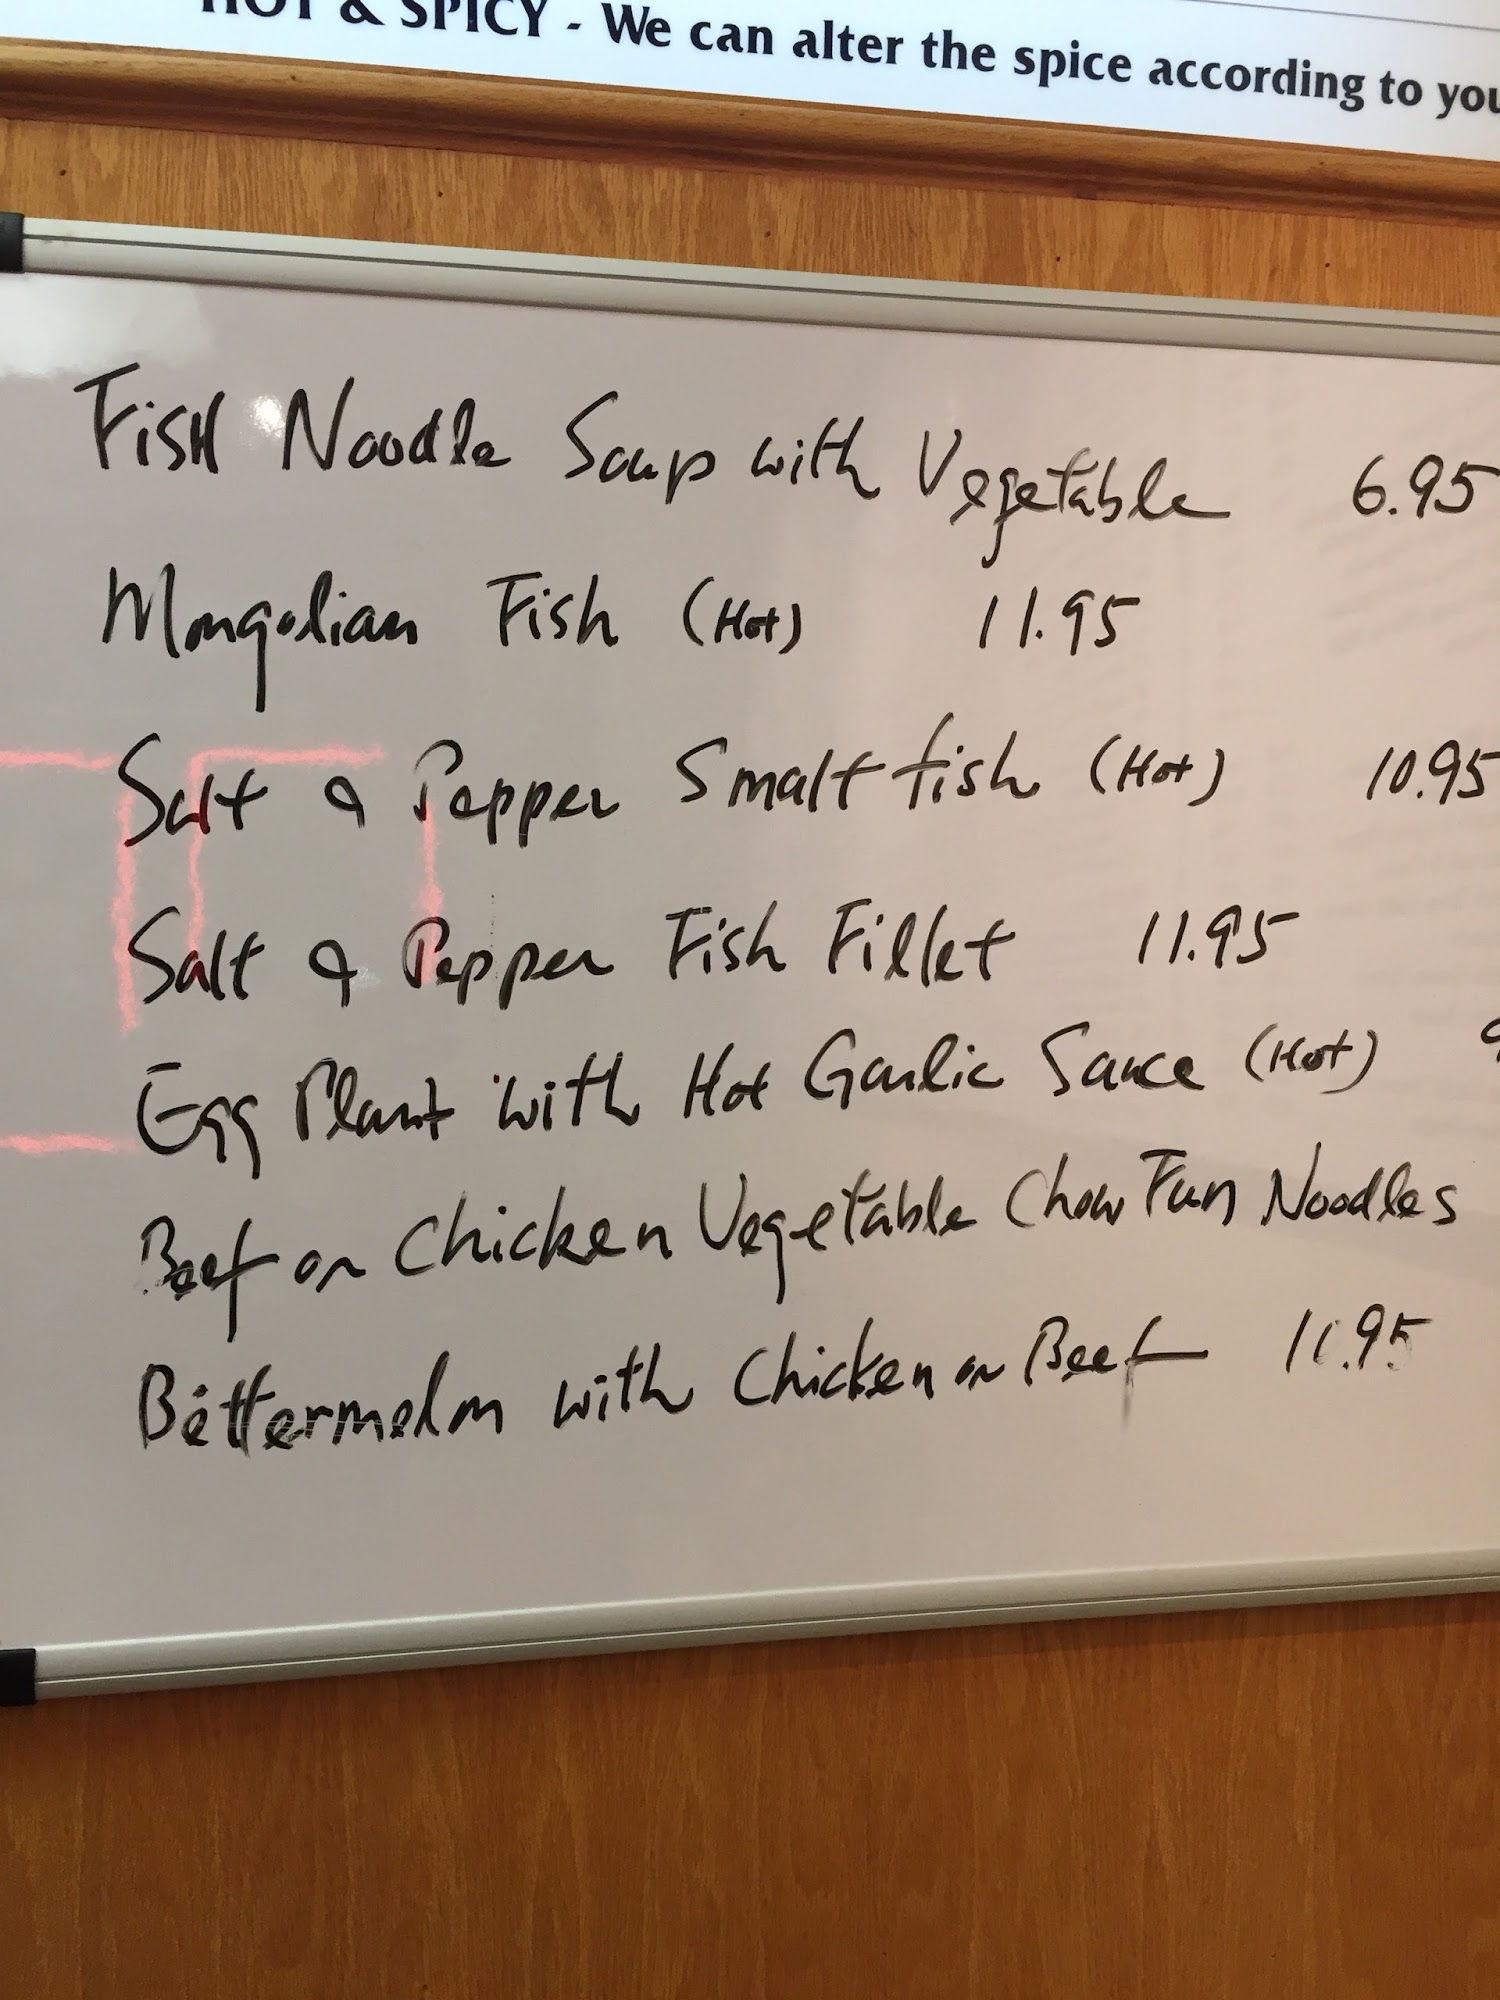 HOT & SPICY - We can alter the spice according to you
Fish Noodle Soup with Vegetable 6.95
Mongolian Fish (Hot) 11.95
Salt & Pepper Small fish (Hot) 10.95
Salt & Pepper Fish Fillet 11.95
Egg Plant with Hot Garlic Sauce (Hot) 9
Beef or Chicken Vegetable Chow Fun Noodles
Bittermelon with Chicken or Beef 11.95